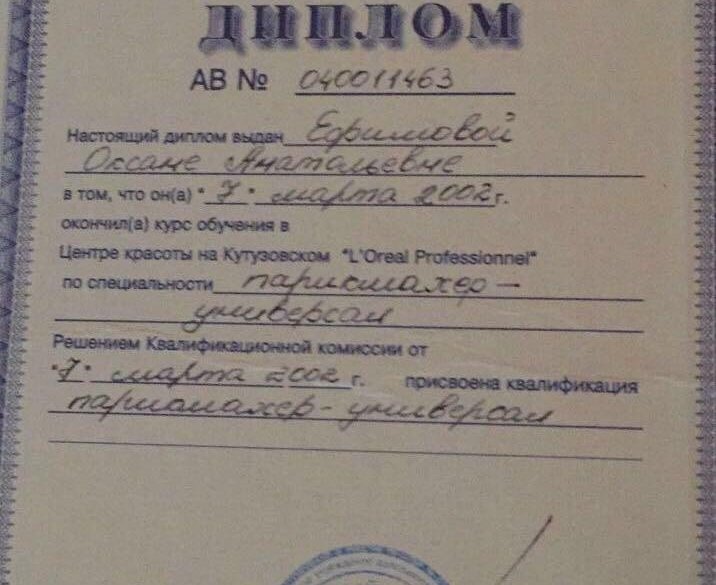 ДИПЛОМ
АВ № 040011463
Настоящий диплом выдан Ефимовой
Оксане Анатольевне
в том, что он(а) "7" марта 2002 г.
окончил(а) курс обучения в
Центре красоты на Кутузовском "L'Oreal Professionnel"
по специальности парикмахер –
универсал
Решением Квалификационной комиссии от
"7" марта 2002 г. присвоена квалификация
парикмахер-универсал